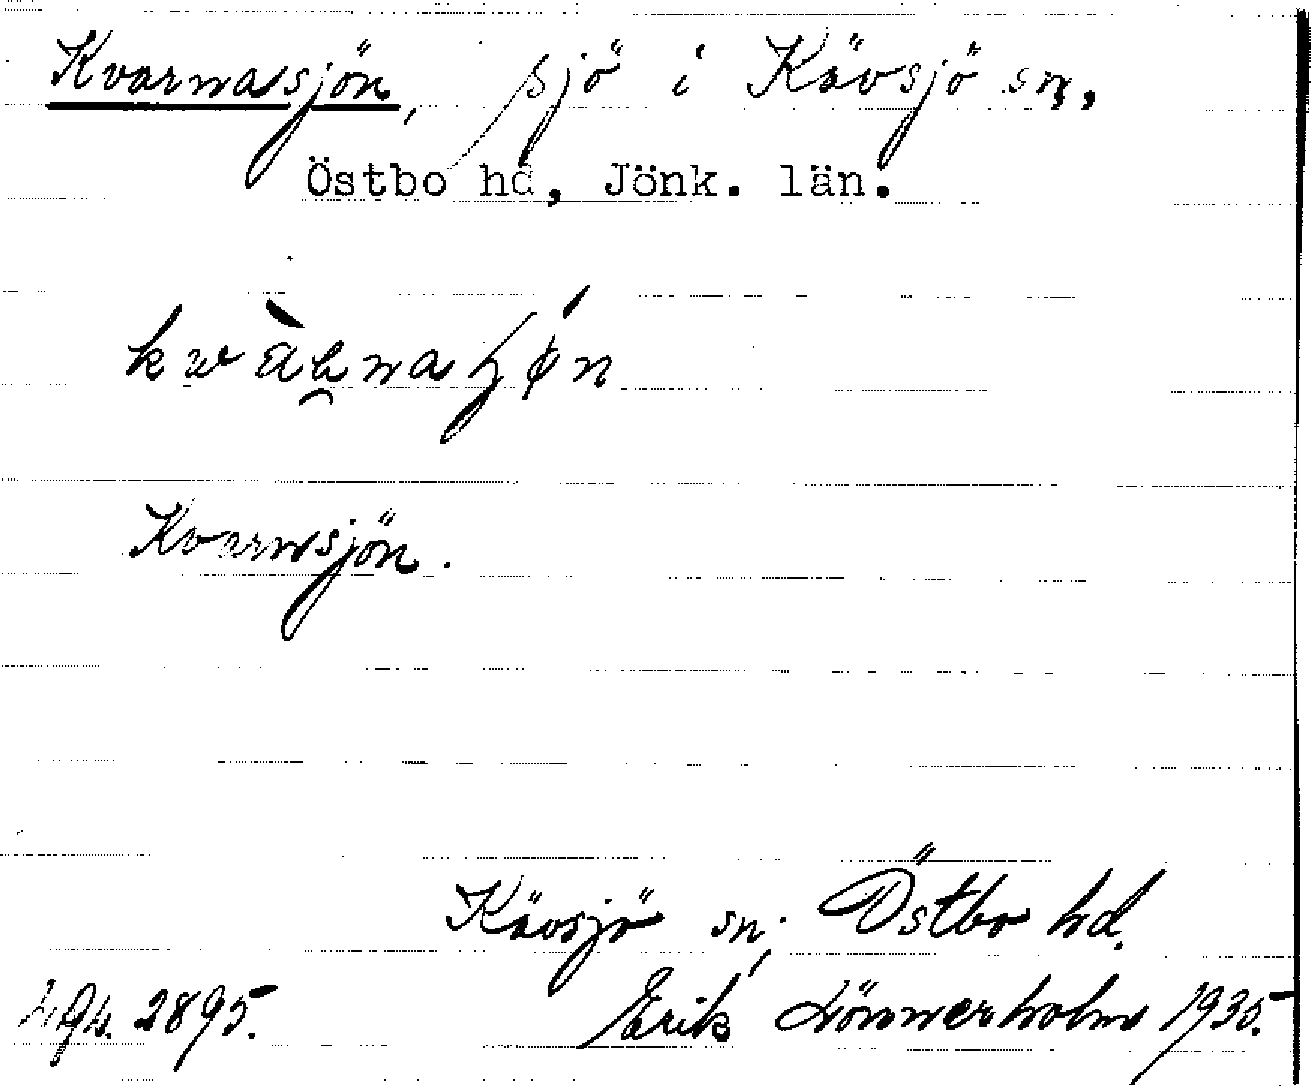 Kvarnasjön, sjö i Kävsjö sn,
Östbo hd, Jönk. län.
Kvarnsjön.
Kävsjö sn, Östbo hd.
2895.
Erik Lönnerholm 1935.